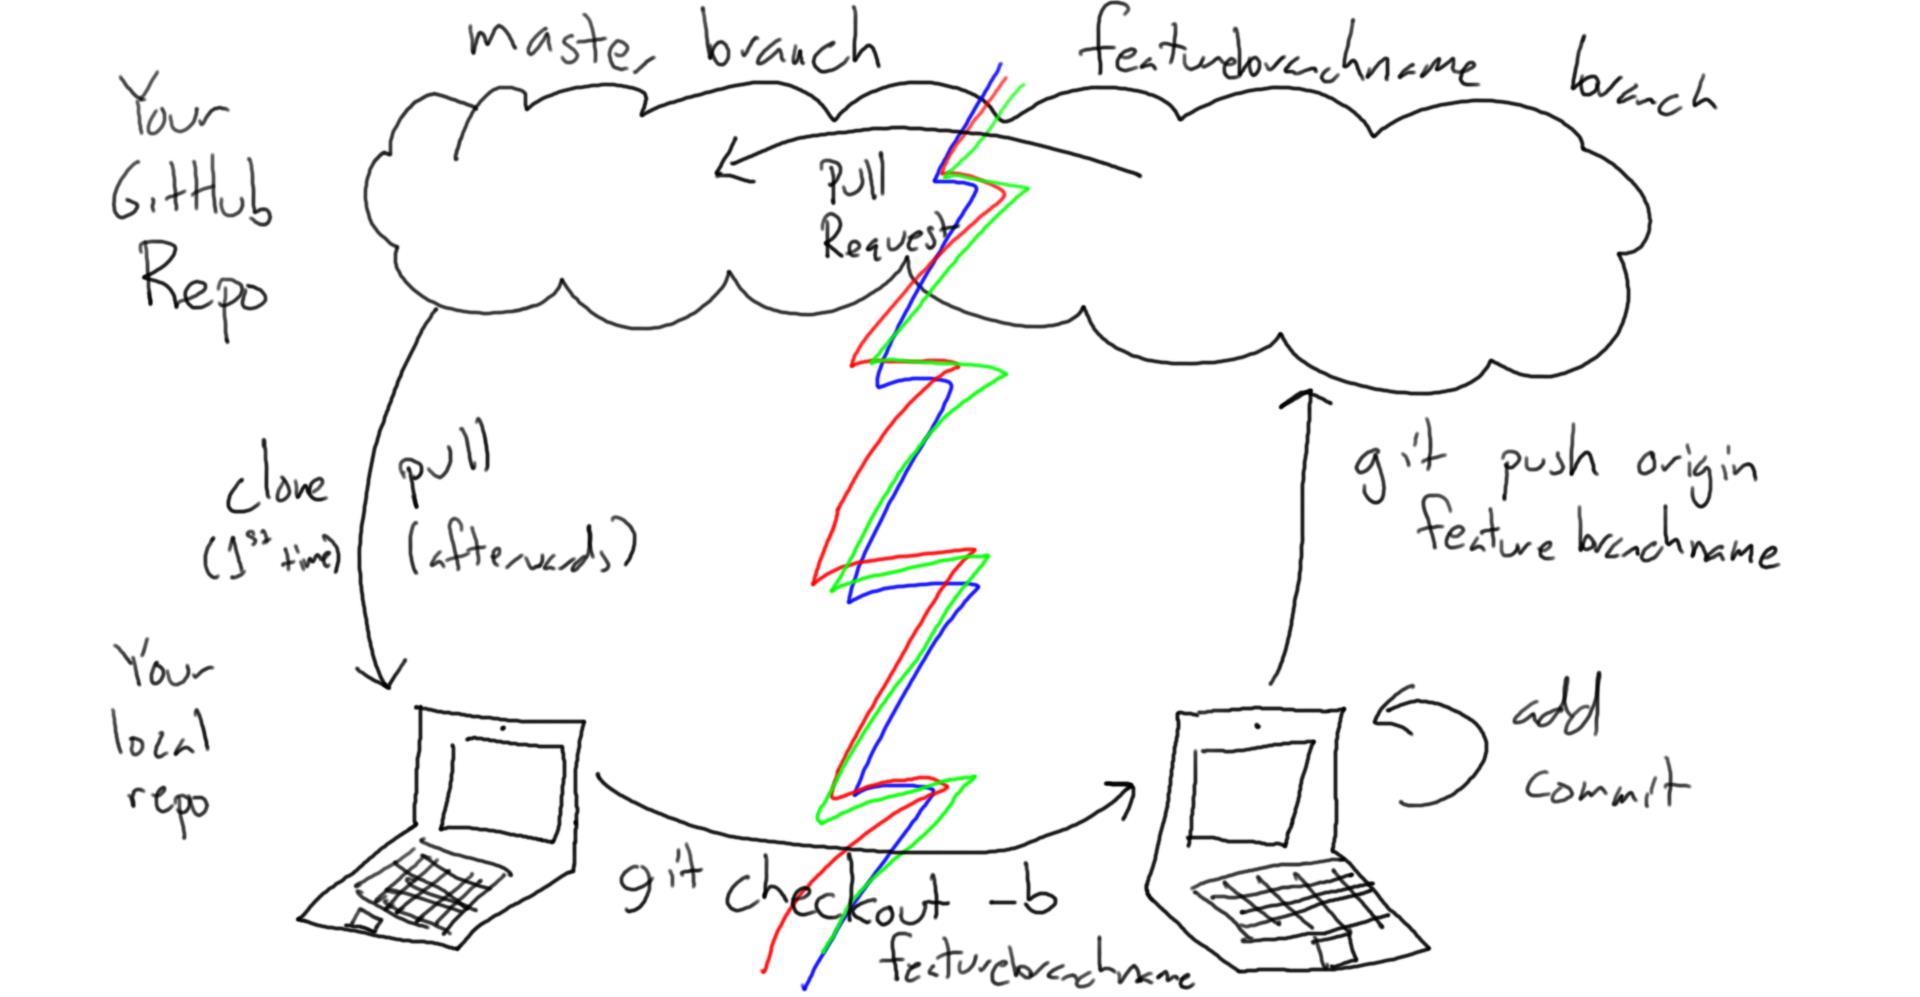 master branch
featurebranchname branch
Your
GitHub
Repo
Pull
Request
clone
(1st time)
pull
(afterwards)
git push origin
feature branchname
Your
local
repo
add
commit
git checkout -b
featurebranchname